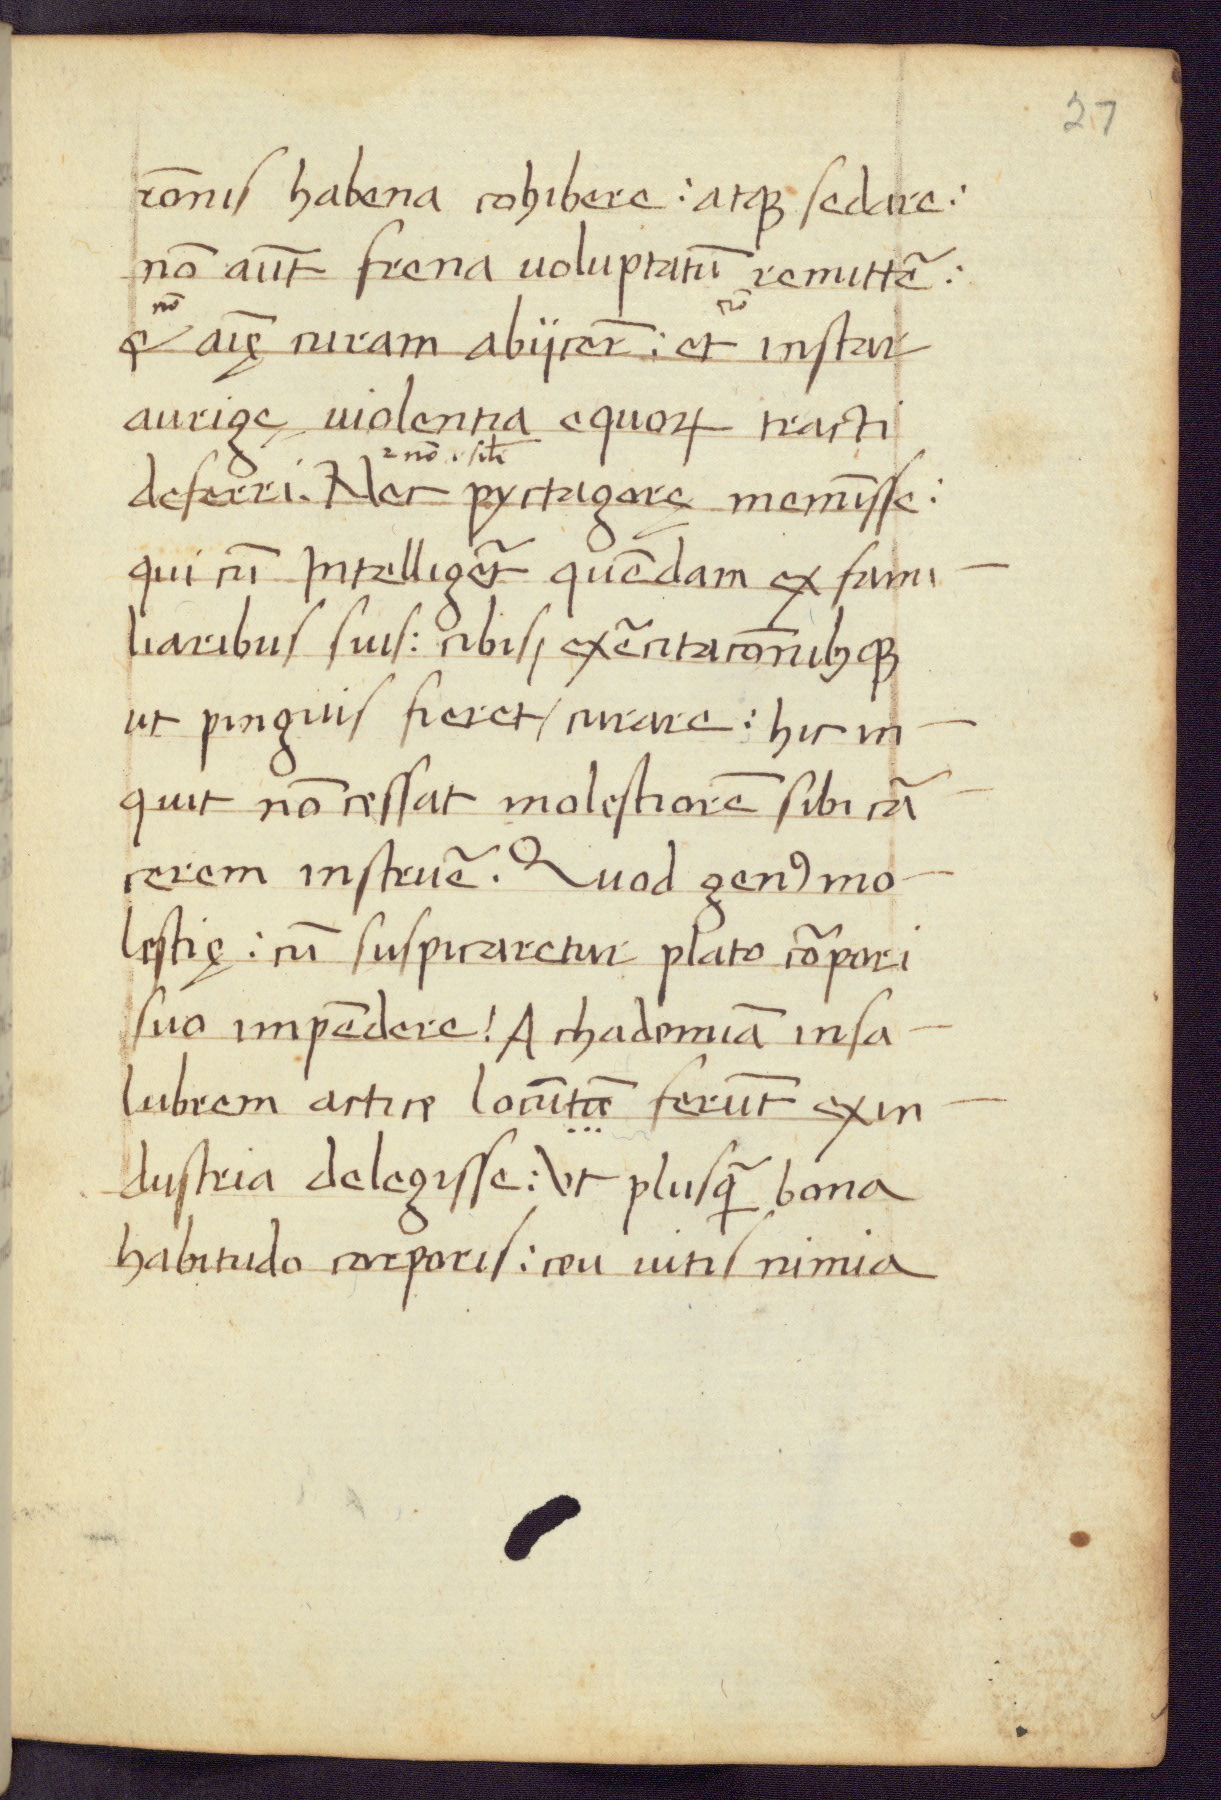 27
rōnis habena cohibere: atqꝫ sedare:
nō aūt frena uoluptatū remittē:
nō nō
& aīę curam abijcer̄: et instar
aurigę uiolentia equoꝝ tracti
2 nō
deferri. Nec pyctagorę memīsse:
qui cū Intelliger̄t quēdam ex fami-
liaribus suis: cibis exēcitacōnibꝫqꝫ
ut pinguis fieret/ curare: hic in-
quit nō cessat molestiorē sibi cā-
cerem instruē. Quod genꝯ mo-
lestię: cū suspicaretur plato cōrpori
suo impēdere! Achademiā insa-
lubrem actice locūtū ferūt ex in-
dustria delegisse: Vt plusꝗ̄ bona
habitudo corporis: ceu uitis nimia